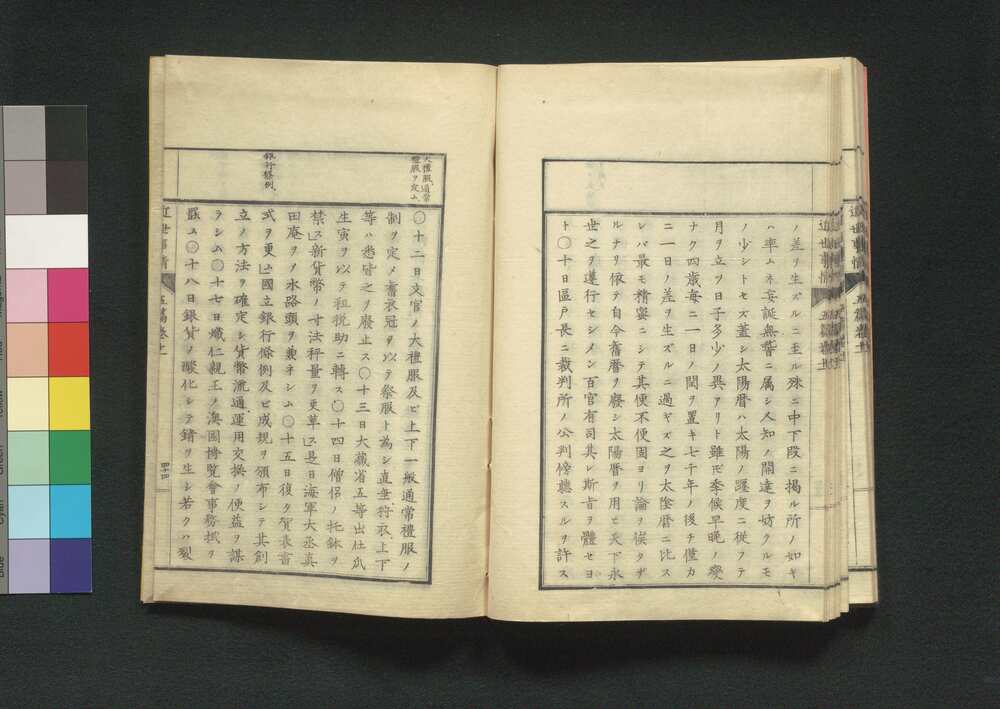 ノ差リ生ズルニ至ル殊ニ中下段ニ掲ル所ノ如キ
ハ率ムネ妄誕無稽ニ属シ人知ノ開達ヲ妨クルモ
ノ少シトセズ蓋シ太陽暦ハ太陽ノ躔度ニ従フテ
月ヲ立ツ日子多少ノ異アリト雖𪜈季候早晩ノ變
ナク四歳毎ニ一日ノ閏ヲ置キ七千年ノ後チ僅カ
ニ一日ノ差ヲ生ズルニ過ギズ之ヲ太陰暦ニ比ス
レバ最モ精密ニシテ其便不便固ヨリ論ヲ俟タザ
ルナリ依テ自今舊暦ヲ廢シ太陽暦ヲ用ヒ天下永
世之ヲ遵行セシメン百官有司其レ斯旨ヲ體セヨ
ト〇十日區戸長ニ裁判所ノ公判傍聴スルヲ許ス
大禮服、通常
禮服ヲ定ム、
〇十二日文官ノ大禮服及ビ上下一般通常禮服ノ
制ヲ定メ舊衣冠ヲ以テ祭服ト為シ直垂狩衣上下
等ハ悉皆之ヲ廢止ス〇十三日大藏省五等出仕瓜
生寅ヲ以テ租税助ニ轉ス〇十四日僧侶ノ托鉢ヲ
禁ス新貨幣ノ寸法秤量ヲ更革ス是日海軍大丞真
田庵ヲシノ水路頭ヲ兼ネシム〇十五日復タ賀表書
式ヲ更ム國立銀行條例及ヒ成規ヲ頒布シテ其創
立ノ方法ヲ確定シ貨幣流通運用交換ノ便益ヲ謀
ラシム〇十七日熾仁親王ノ澳國博覧會事務
ム〇十八日銀貨ノ酸化シテ錆ヲ生シ若クハ裂
銀行條例、
近世事情
五篇卷十一
四十四